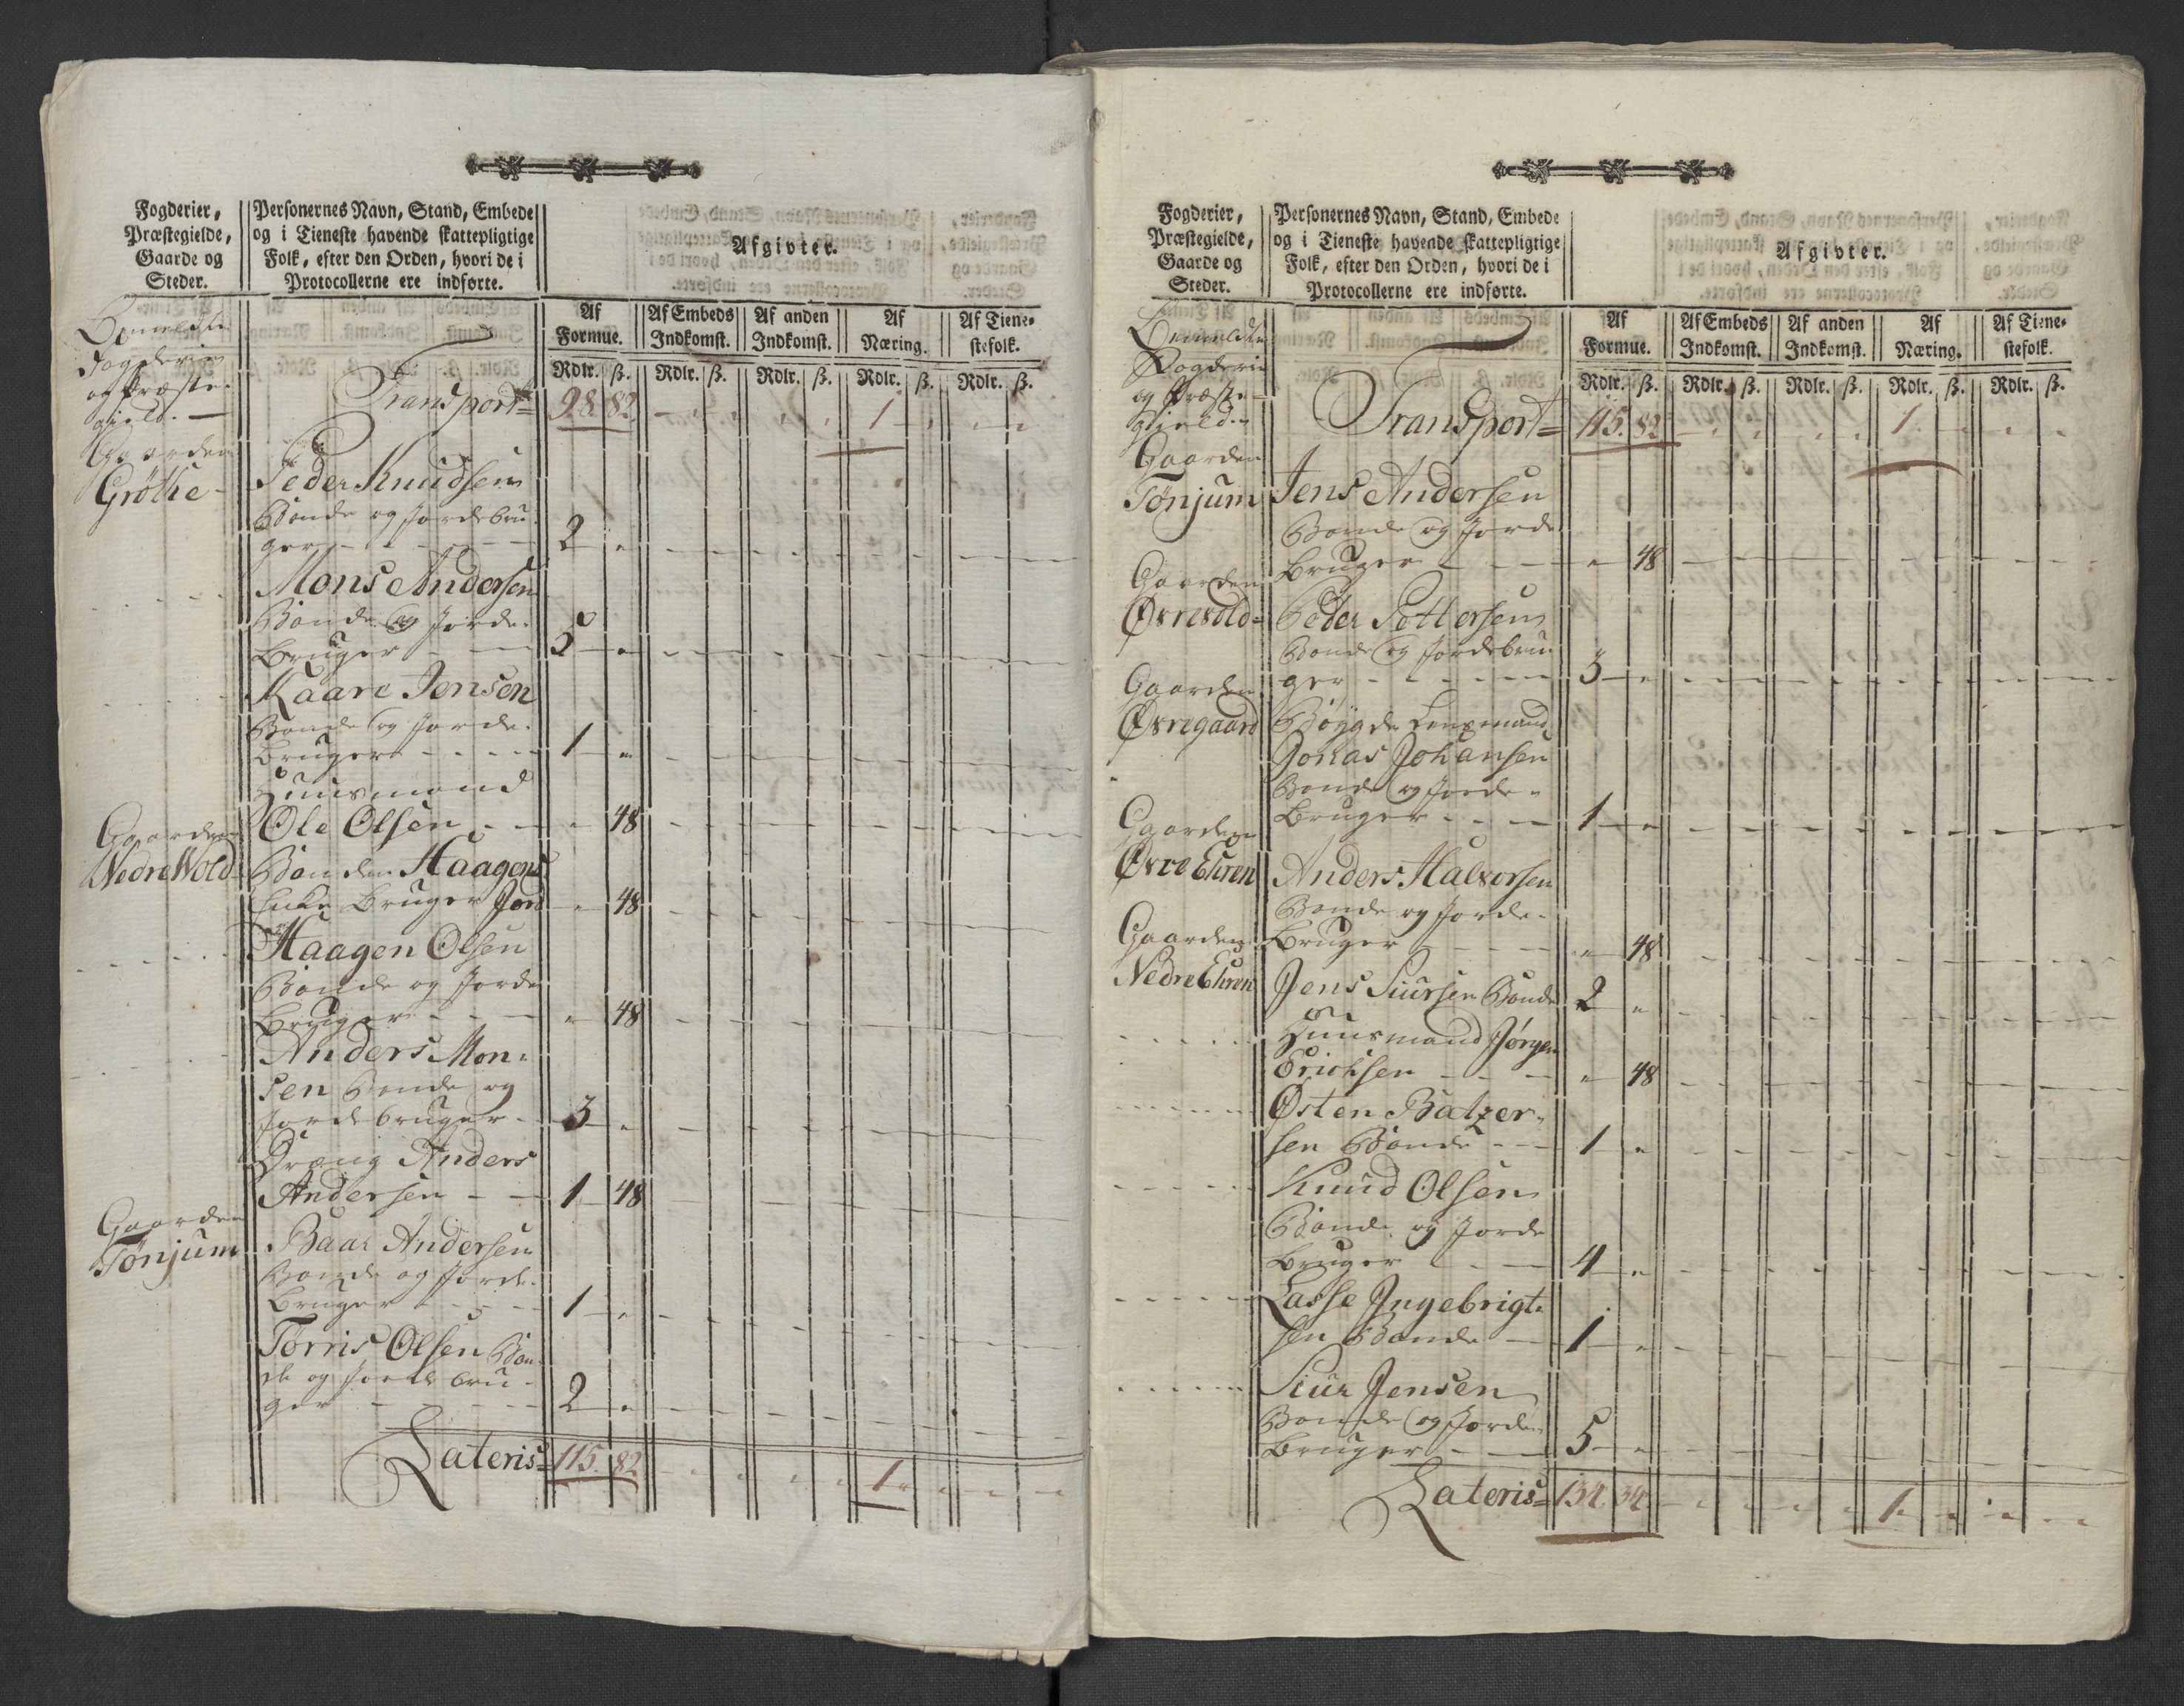 Fogderier,
Præstegielde,
Gaarde og
Steder.
Personernes Navn, Stand, Embede
og i Tieneste havende skattepligtige
Folk, efter den Orden, hvori de i
Protocollerne ere indførte.
Afgivter.
Af
Formue.
Af Embeds
Indkomst.
Af anden
Indkomst.
Af
Næring.
Af Tiene-
stefolk.
Rdlr. ß. Rdlr. ß. Rdlr. ß. Rdlr. ß. Rdlr. ß.
Bemeldte
Fogderie
og Præste-
gield. —
Transport= 98. 82. 1
Gaarden
Grøthe
Peder Knudsen
Bonde og Jordebru-
ger 2 "
Mons Andersen
Bonde og Jorde-
bruger 5 "
Kaare Jensen
Bonde og Jorde-
bruger 1 "
Huusmand
Ole Olsen " 48
Gaarden
Nedre Wold
Bonden Haagens
Enke bruger Jord " 48
Haagen Olsen
Bonde og Jorde
bruger " 48
Anders Mon-
sen Bonde og
Jordebruger 3 "
Dreng Anders
Andersen 1 48
Gaarden
Tønjum
Baar Andersen
Bonde og Jorde-
bruger 1 "
Torris Olsen Bon-
de og Jordebru-
ger 2 "
Lateris= 115. 82. 1 "
Fogderier,
Præstegielde,
Gaarde og
Steder.
Personernes Navn, Stand, Embede
og i Tieneste havende skattepligtige
Folk, efter den Orden, hvori de i
Protocollerne ere indførte.
Afgivter.
Af
Formue.
Af Embeds
Indkomst.
Af anden
Indkomst.
Af
Næring.
Af Tiene-
stefolk.
Rdlr. ß. Rdlr. ß. Rdlr. ß. Rdlr. ß. Rdlr. ß.
Bemeldte
Fogderie
og Præste-
gield
Transport= 115. 82 1.
Gaarden
Tønjum
Jens Andersen
Bonde og Jorde
bruger " 48
Gaarden
Øvrevold
Peder Pettersen
Bonde og Jordebru-
ger 3 "
Gaarden
Øvregaard
Bøygde Lensmand
Jonas Johansen
Bonde og Jorde-
bruger 1 "
Gaarden
Øvre Ehren
Anders Halvorsen
Bonde og Jorde-
bruger " 48
Gaarden
Nedre Ehren
Jens Siursen Bonde 2 "
Huusmand Jørgen
Erichsen " 48
Østen Balzer-
sen Bonde 1 "
Knud Olsen
Bonde og Jorde
bruger 4 "
Lasse Ingebrigt-
sen Bonde 1 "
Siur Jensen
Bonde og Jorde-
bruger 5 "
Lateris= 134. 34. 1.